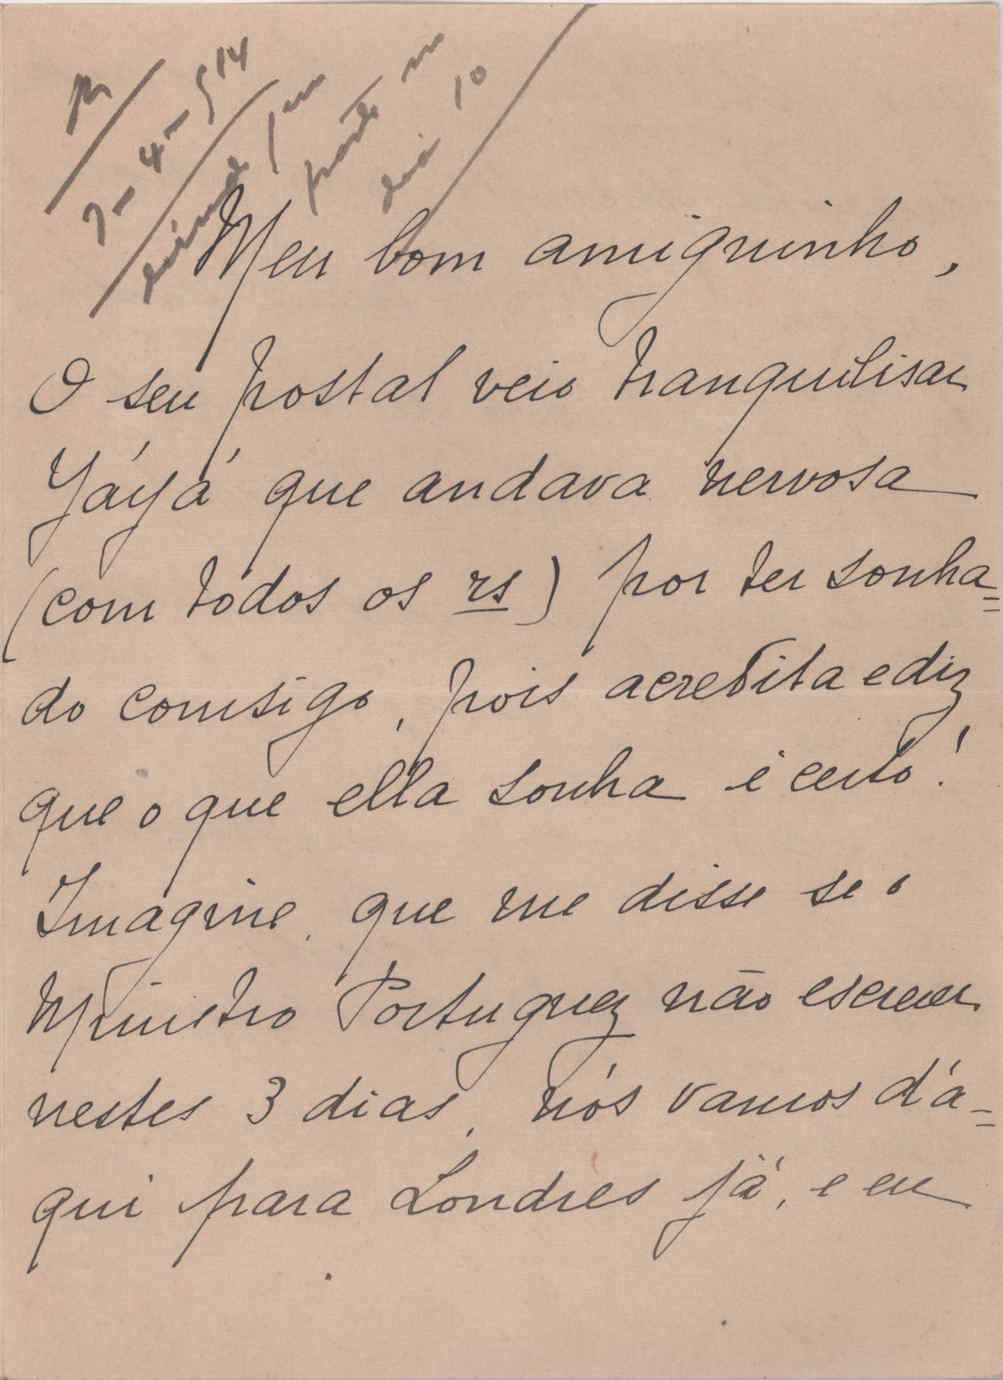 7-4-914
dia 10
Meu bom amiguinho,
O seu postal veio tranquilisar
Yáyá que andava nervosa
(com todos os rs) por ter sonha=
do comsigo, pois acredita e diz
que o que ella sonha é certo!
Imagine, que me disse se o
Ministro Portuguez não escrever
nestes 3 dias, nós vamos d'a=
qui para Londres já, e eu